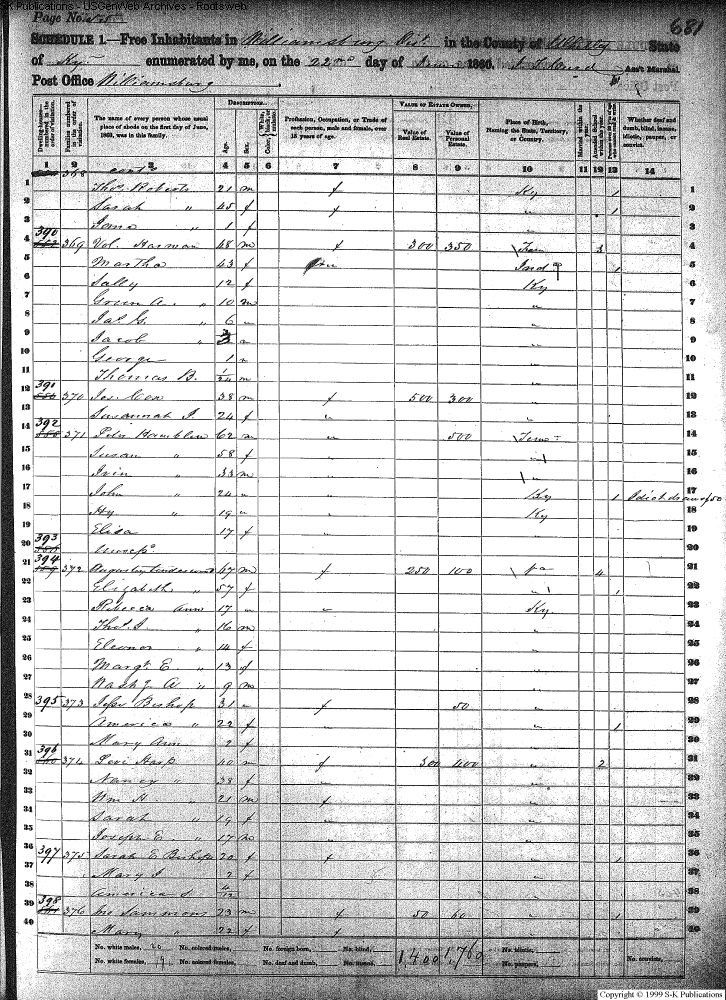 S-K Publications - USGenWeb Archives - Rootsweb
Page No.
681
SCHEDULE 1.—Free Inhabitants in Williamsburg Dist in the County of State
of Ky enumerated by me, on the 22nd day of June 1860. Ass't Marshal.
Post Office Williamsburg
Dwelling-houses—numbered in the order of visitation.
Families numbered in the order of visitation.
The name of every person whose usual place of abode on the first day of June, 1860, was in this family.
DESCRIPTION.
Age.
Sex.
Color, White, black, or mulatto.
Profession, Occupation, or Trade of each person, male and female, over 15 years of age.
VALUE OF ESTATE OWNED.
Value of Real Estate.
Value of Personal Estate.
Place of Birth, Naming the State, Territory, or Country.
Married within the year.
Attended School within the year.
Whether deaf and dumb, blind, insane, idiotic, pauper, or convict.
1 2 3 4 5 6 7 8 9 10 11 12 13 14
368 cont
1 Thos Roberts 21 m f Ky 1 1
2 Sarah " 45 f f " 1 2
3 " 1 f " 3
4 390 369 Vol. Harman 48 m f 300 350 Tenn 3 4
5 Martha 43 f Ind 1 5
6 Sally 12 f Ky 6
7 Green A. " 10 m 7
8 Jas G. " 6 " " 8
9 Jacob " 3 " " 9
10 George 1 " " 10
11 Thomas B. 1/24 m " 11
12 391 370 Jos. Cox 38 m f 500 300 " 12
13 Susannah J. 24 f " " 13
14 392 371 Peter Hamblin 62 m " 500 Tenn 14
15 Susan " 58 f " " 15
16 Irvin " 33 m " " 16
17 John " 24 " " Ky 1 17
18 Hy " 19 " " Ky 18
19 Elisa 17 f " " 19
20 393 Unocp
21 394 372 67 m f 250 100 Va 4 21
22 Elizabeth " 57 f " 1 22
23 Rebecca Ann " 17 " " Ky 23
24 Thos J. " 16 m " 24
25 Eleonor " 14 f " 25
26 Margt E " 13 f " 26
27 A " 9 m " 27
28 395 373 Bishop 31 " f 50 " 28
29 America " 22 f " " 1 29
30 Mary Ann 2 f " 30
31 396 374 Levi Harp 40 m f 300 400 " 2 31
32 Nancy " 38 f " 32
33 Wm H. " 21 m f " 33
34 Sarah " 19 f " " 34
35 Joseph E. " 17 m 35
36 397 375 Sarah E Bishop 20 f f " 1 36
37 Mary J 2 f " 37
38 America S 4/12 " 38
39 398 376 Jno Sammons 23 m f 50 60 " 1 39
40 Mary " 22 f f " 40
No. white males, 20 No. colored males, No. foreign born, No. blind, 1,400 1,760 No. idiotic,
No. white females, 19 No. colored females, No. deaf and dumb, No. insane, No. paupers, No. convicts,
Copyright © 1999 S-K Publications